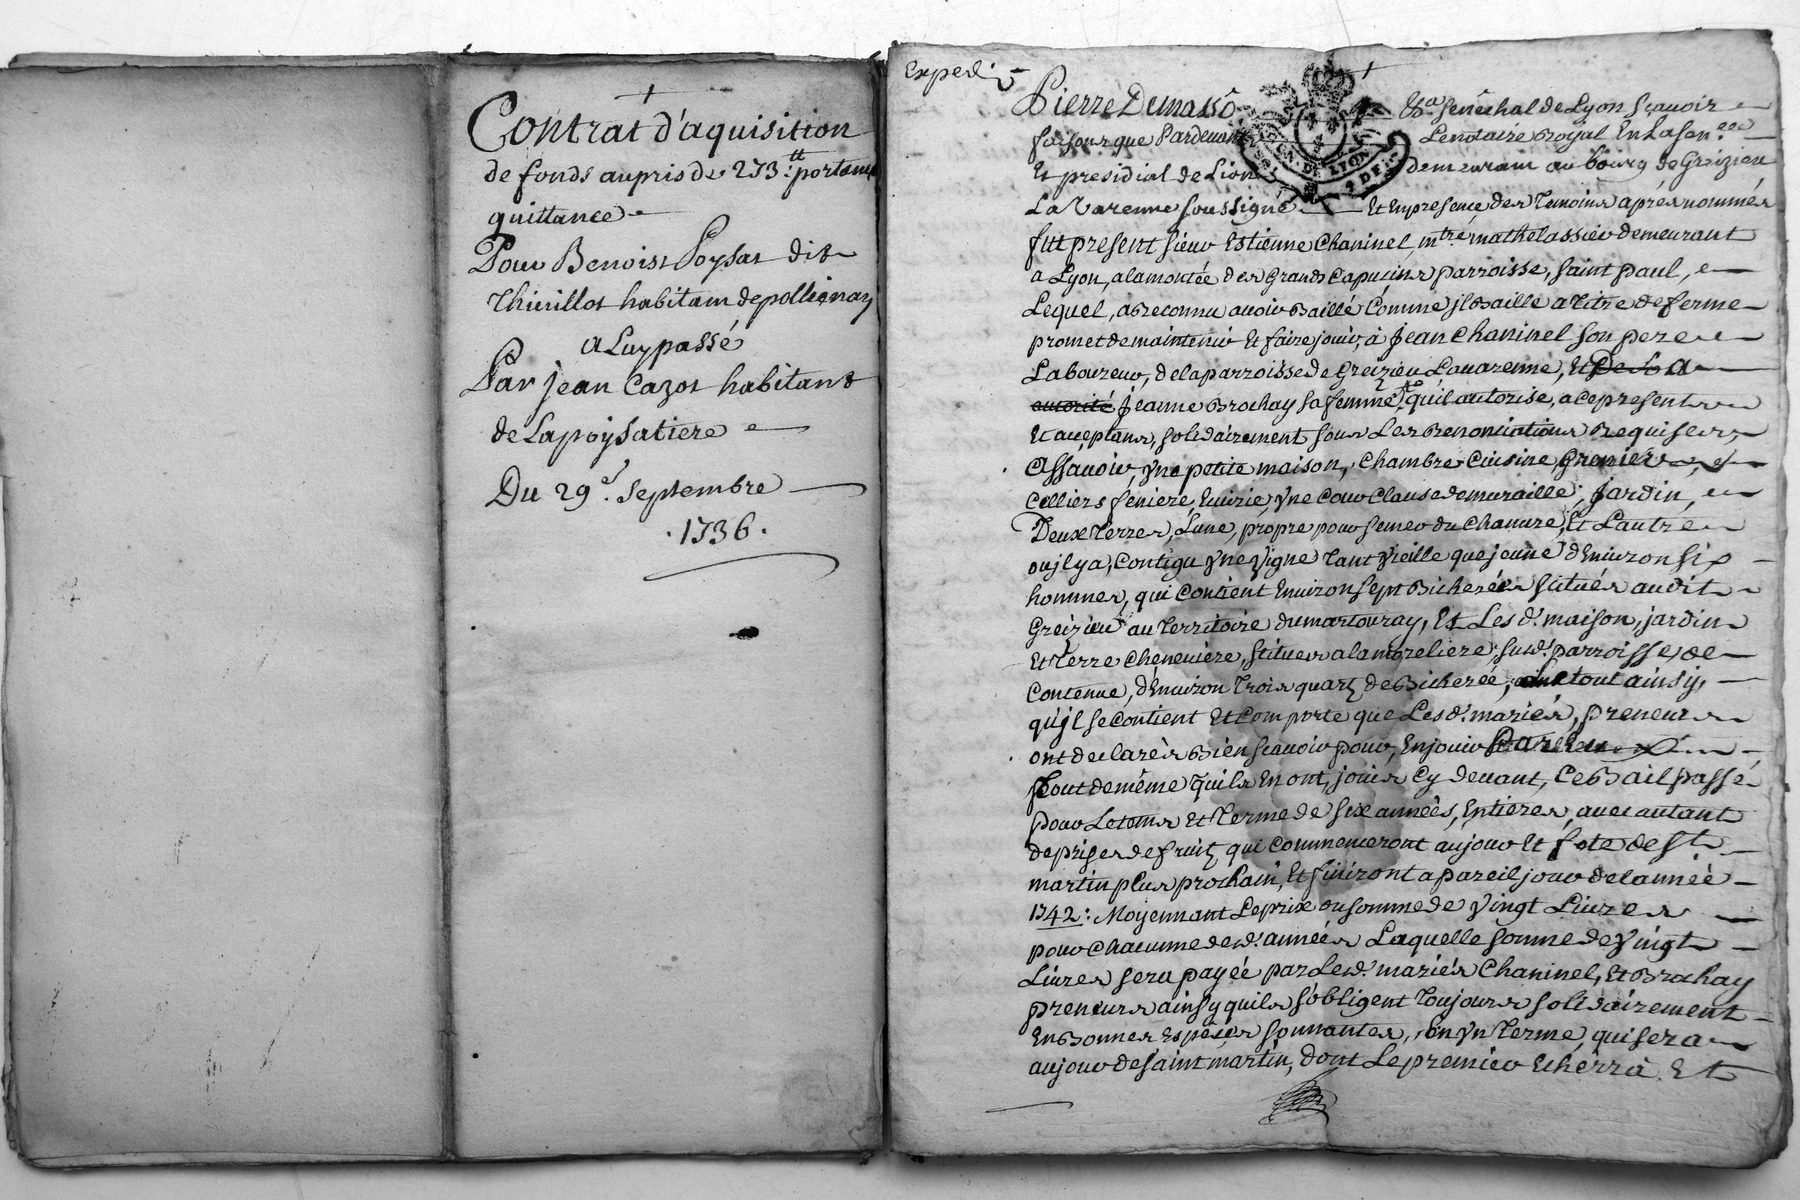 Contrat d'aquisition
de fonds aupris de 273.tt portant
quittance
Pour Benoist Poysat dit
Thivillot habitant de pollionay
a Luy passé
Par jean Cazot habitant
de Lapoysatiere
Du 29e. Septembre
.1736.
Expedié
Pierre Dumas
Senêchal de Lyon Sçavoir
faisons que Pardevant Le notaire Royal En La senéee
Et presidial de Lion demeurant au bourg de Greizieu
La Varenne soussigné Et En presence des Temoins aprés nommés
fut present sieur Estienne Chaninel, mtre mathelassier demeurant
a Lyon, a la montée des Grands Capucins parroisse, saint paul,
Lequel, a Reconnu avoir Baillé Comme jl Baille a Titre de ferme
promet de maintenir Et faire jouir, à Jean Chaninel son pere
Laboureur, de la parroisse de Greizieu Lavarenne, Et De La
autorité Jeanne Brochay sa femme, qu'il autorise, a ce present
Et aceptans, solidairement sous Les Renonciations Requises,
Assavoir, yne petite maison, Chambre Cuisine Grenier
Celliers feniere, Ecurie, yne Cour Clause de muraille, Jardin,
Deux Terres, L'une, propre pour semer du Chanvre, Et L'autre
ou jl y a, Contigu yne Vigne Tant Vieille que jeune d'Environ six
hommes, qui Contient Environ sept Bicherées situés audit
Greizieu au Territoire du martouray, Et Les d. maison, jardin
Et Terre Cheneviere, situes a la morelière, susd. parroisse, de
Contenue, d'Environ Trois quartz de Bicherée, tout ainsy,
qu'jl se Contient Et Comporte que Lesd. mariés, preneurs
ont declarés Bien Scavoir pour, En jouir
Tout de même qu'ils En ont, jouis Cy devant, Ce Bail passé
pour Le tems Et Terme de six années, Entieres, avec autant
de prises de fruitz qui Commenceront au jour Et fete de St
martin plus prochain, Et finiront a pareil jour de l'année
1742: Moyennant Le prix ou somme de Vingt Livres
pour Chacunne desd. années Laquelle somme de Vingt
Livres sera payée par Lesd. mariés Chaninel, Et Brochay
preneurs ainsy quils s'obligent Toujours solidairement
En Bonnes Espéces sonnantes, En yn Terme, qui sera
au jour de saint martin, dont Le premier Echerra Et